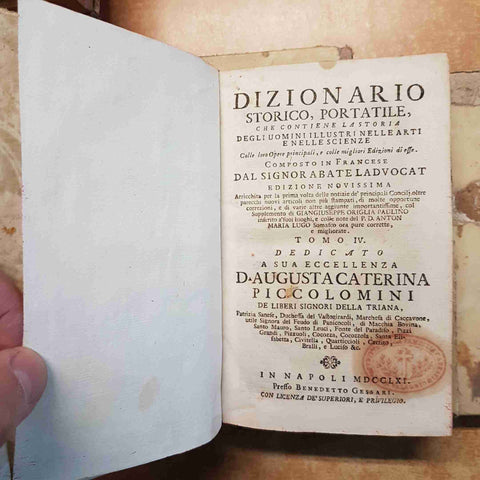 DIZIONARIO
STORICO, PORTATILE,
CHE CONTIENE LA STORIA
DEGLI UOMINI ILLUSTRI NELLE ARTI
E NELLE SCIENZE
Colle loro Opere principali, e colle migliori Edizioni di esse.
COMPOSTO IN FRANCESE
DAL SIGNOR ABATE LADVOCAT
EDIZIONE NOVISSIMA
Arricchita per la prima volta delle notizie de' principali Concilj, oltre
parecchi nuovi articoli non più stampati, di molte opportune
correzioni, e di varie altre aggiunte importantissime, col
Supplemento di GIANGIUSEPPE ORIGLIA PAULINO
inserito a' suoi luoghi, e colle note del P. D. ANTON
MARIA LUGO Somasco ora pure corrette,
e migliorate.
TOMO IV.
DEDICATO
A SUA ECCELLENZA
D. AUGUSTA CATERINA
PICCOLOMINI
DE LIBERI SIGNORI DELLA TRIANA,
Patrizia Sanese, Duchessa del Valbogirardi, Marchesa di Caccavone,
utile Signora del Feudo di Panicocoli, di Macchia Bovina,
Santo Mauro, Santo Leuci, Fonte del Paradiso, Pizzi
Grandi, Pizzuoli, Cocozza, Cocozzola, Santa Eli-
sabetta, Civitella, Quarticcioli,
Bralli, e Luciso &c.
IN NAPOLI MDCCLXI.
Presso BENEDETTO GESSARI.
CON LICENZA DE' SUPERIORI, E PRIVILEGIO.